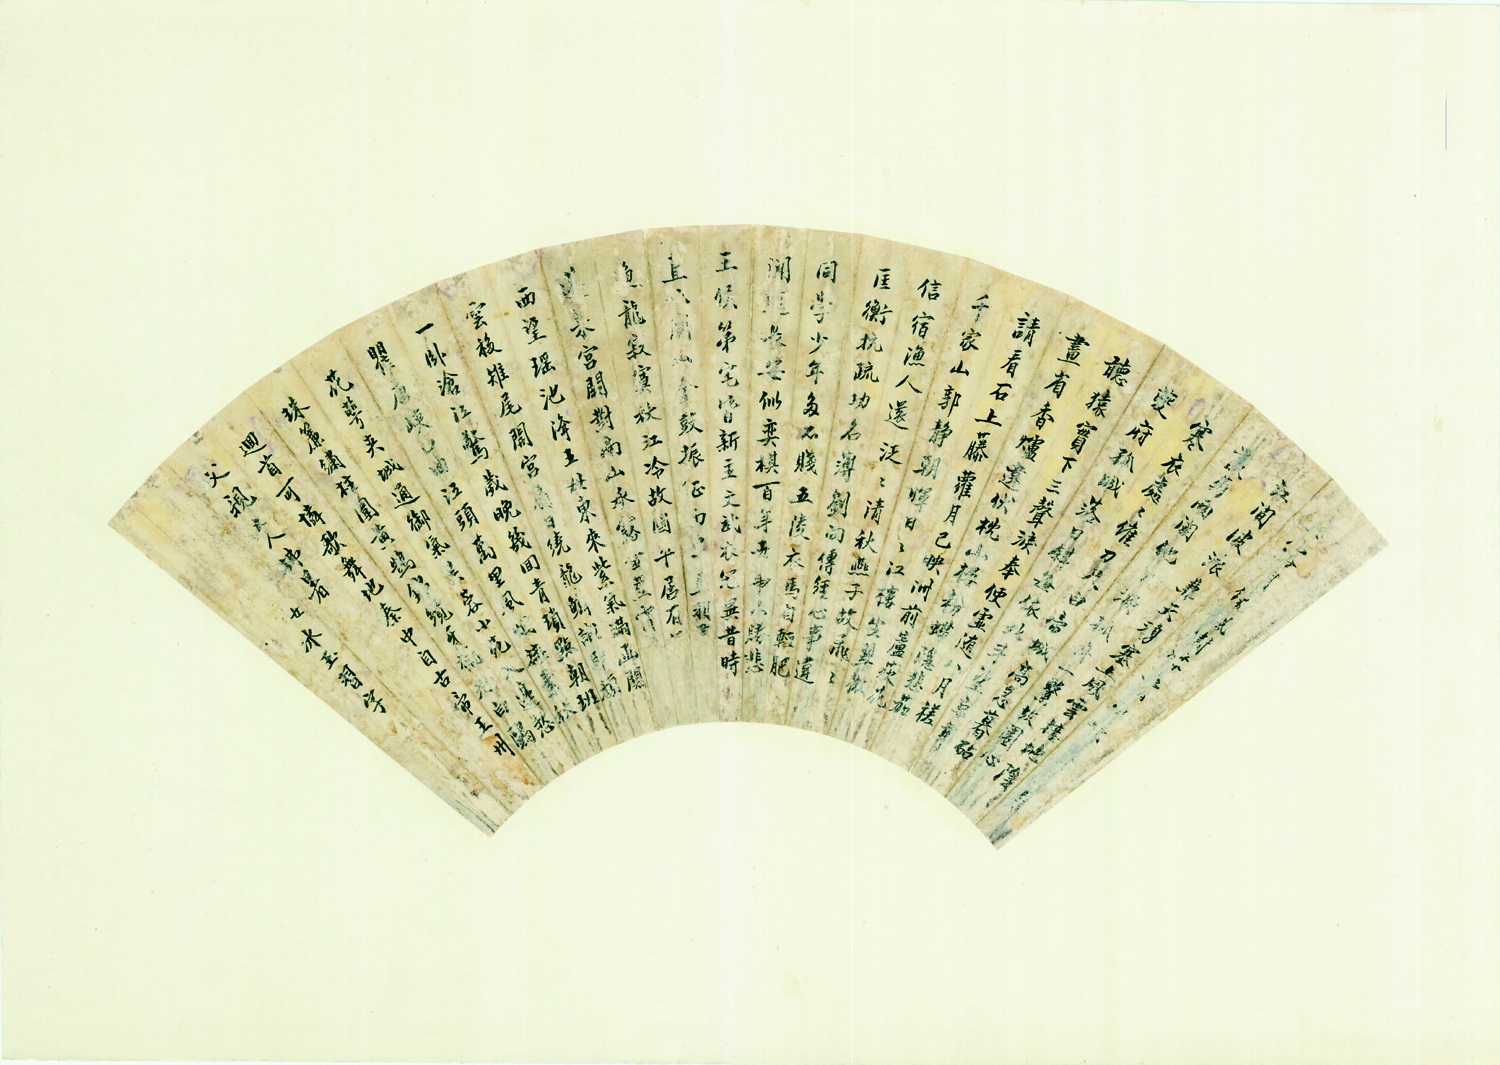 江間波浪兼天湧塞上風雲接地陰
叢菊兩開他孤一繫故園心
寒衣處〻催刀尺白帝城高急暮砧
夔府孤城落日斜每依北斗望京華
聽猿實下三聲淚奉使虛隨八月槎
畫省香爐違伏枕山樓粉蝶隱悲笳
請看石上藤蘿月已映洲前蘆荻花
千家山郭靜朝暉日〻江樓坐翠微
信宿漁人還泛〻清秋燕子故飛〻
匡衡抗疏功名薄劉向傳經心事違
同學少年多不賤五陵衣馬自輕肥
聞道長安似奕棋百年世事不勝悲
王侯第宅皆新主文武衣冠異昔時
直北關山金鼓振征西車馬羽
魚龍寂寞秋江冷故國平居有
蓬萊宮闕對南山承露金莖霄
西望瑤池降王母東來紫氣滿函關
雲移雉尾開宮扇日繞龍鱗識聖顏
一臥滄江驚歲晚幾回青瑣點朝班
瞿唐峽口曲江頭萬里風煙接素秋
花萼夾城通御氣芙蓉小苑入邊愁
珠簾繡柱圍黃鵠錦纜牙檣起白鷗
迴首可憐歌舞地秦中自古帝王州
父親大人